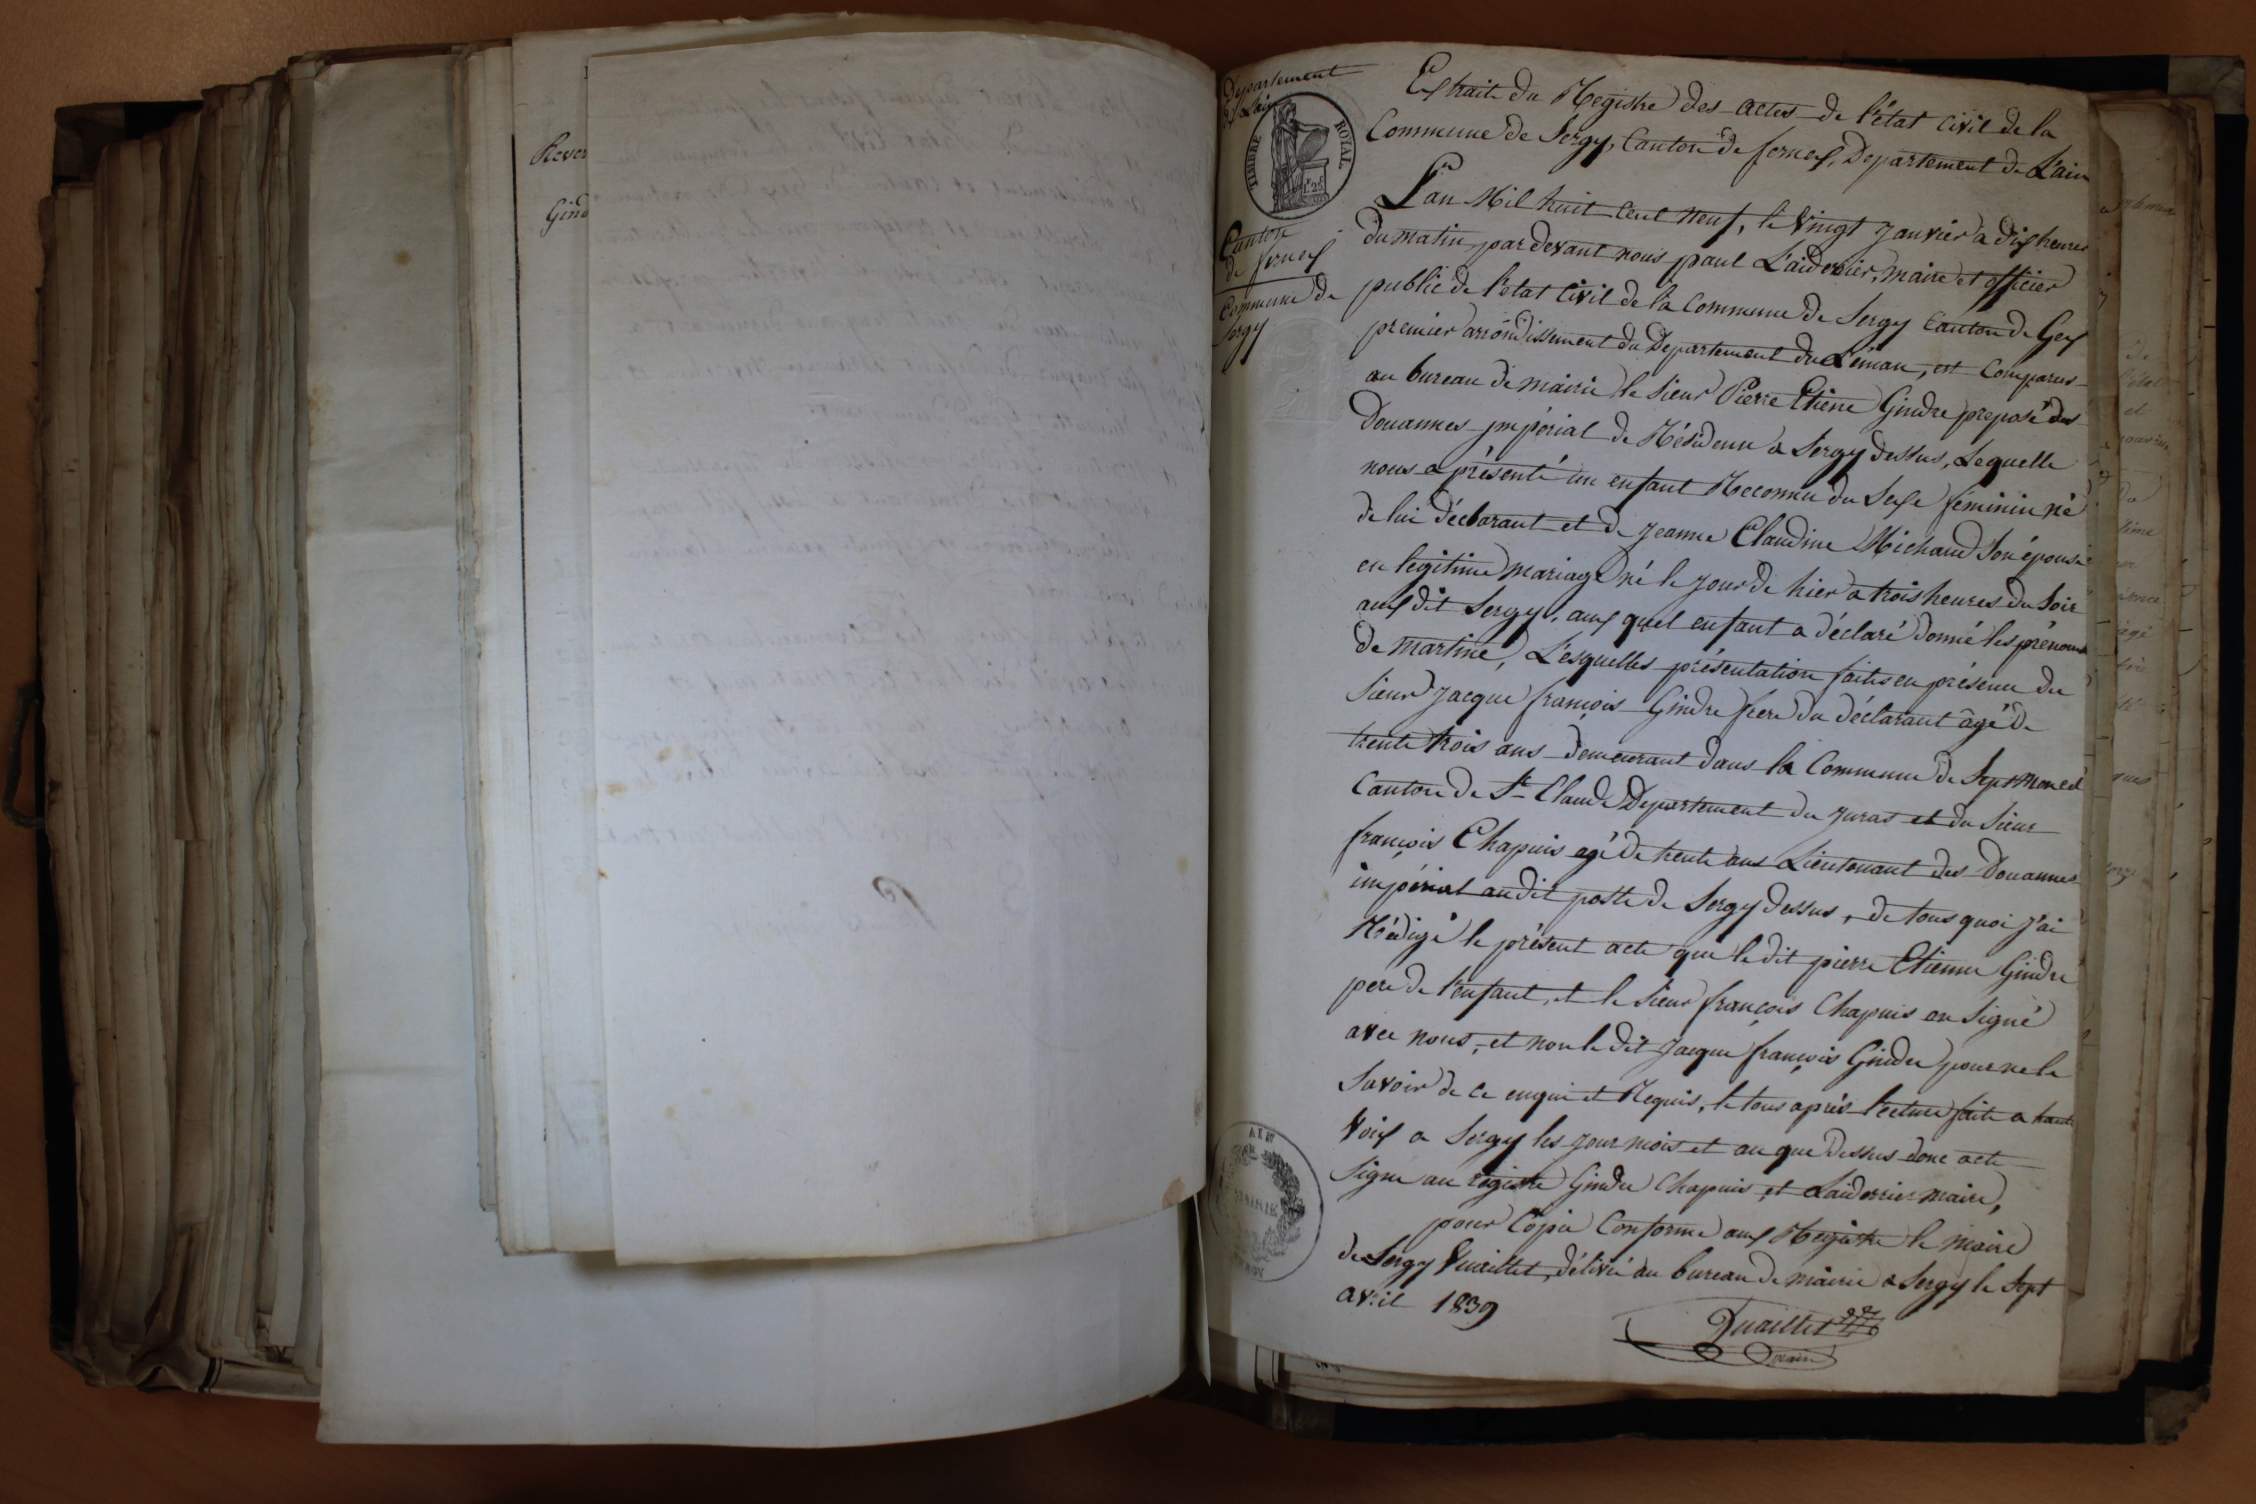 Rever
Gind
Département
de L'ain
TIMBRE ROYAL
1F 25
Canton
de fernex
Commune de
Sergy
Extrait du Registre des actes de l'état civil de la
Commune de Sergy, Canton de fernex, Département de L'ain
L'an Mil huit cent neuf, le vingt janvier a dix heures
du matin, par devant nous paul L'aiderrier, maire et officier
public de l'etat civil de la Commune de Sergy canton de Gex
premier arrondissement du Departement du Léman, est comparus
au bureau de mairie le sieur Pierre Etiene Gindre preposé des
Douannes jmpérial de Résidence a Sergy dessus, Lequelle
nous a présenté un enfant Reconnu du Sexe féminin né
de lui déclarant et de jeanne Claudine Michaud Son épouse
en légitime mariage né le jour de hier a trois heures du Soir
aux dit Sergy, aux quel enfant a déclaré donné les prénoms
de martine, L'esquelles présentation faites en présence du
sieur jacque françois Gindre frere du déclarant âgé de
trente trois ans demeurant dans la Commune de Septmoncel
Canton de St Claude Departement du juras et du Sieur
françois Chapuis agé de trente ans Lieutenant des Douannes
impérial audit poste de Sergy dessus, de tous quoi j'ai
Rédigé le présent acte que le dit pierre Etienne Gindre
pere de l'enfant, et le sieur françois Chapuis on Signé
avec nous, et non le dit jacque françois Gindre pour ne le
Savoir de ce enquis et Requis, le tous après lecture faite a haute
voix a Sergy les jour mois et an que dessus donc acte
Signe au registre Gindre Chapuis et Laiderrier maire,
pour Copie Conforme aux Registre le maire
de Sergy Vuaillet, délivré au bureau de mairie a Sergy le Sept
avril 1839
AIN
MAIRIE
Vuaillet
maire